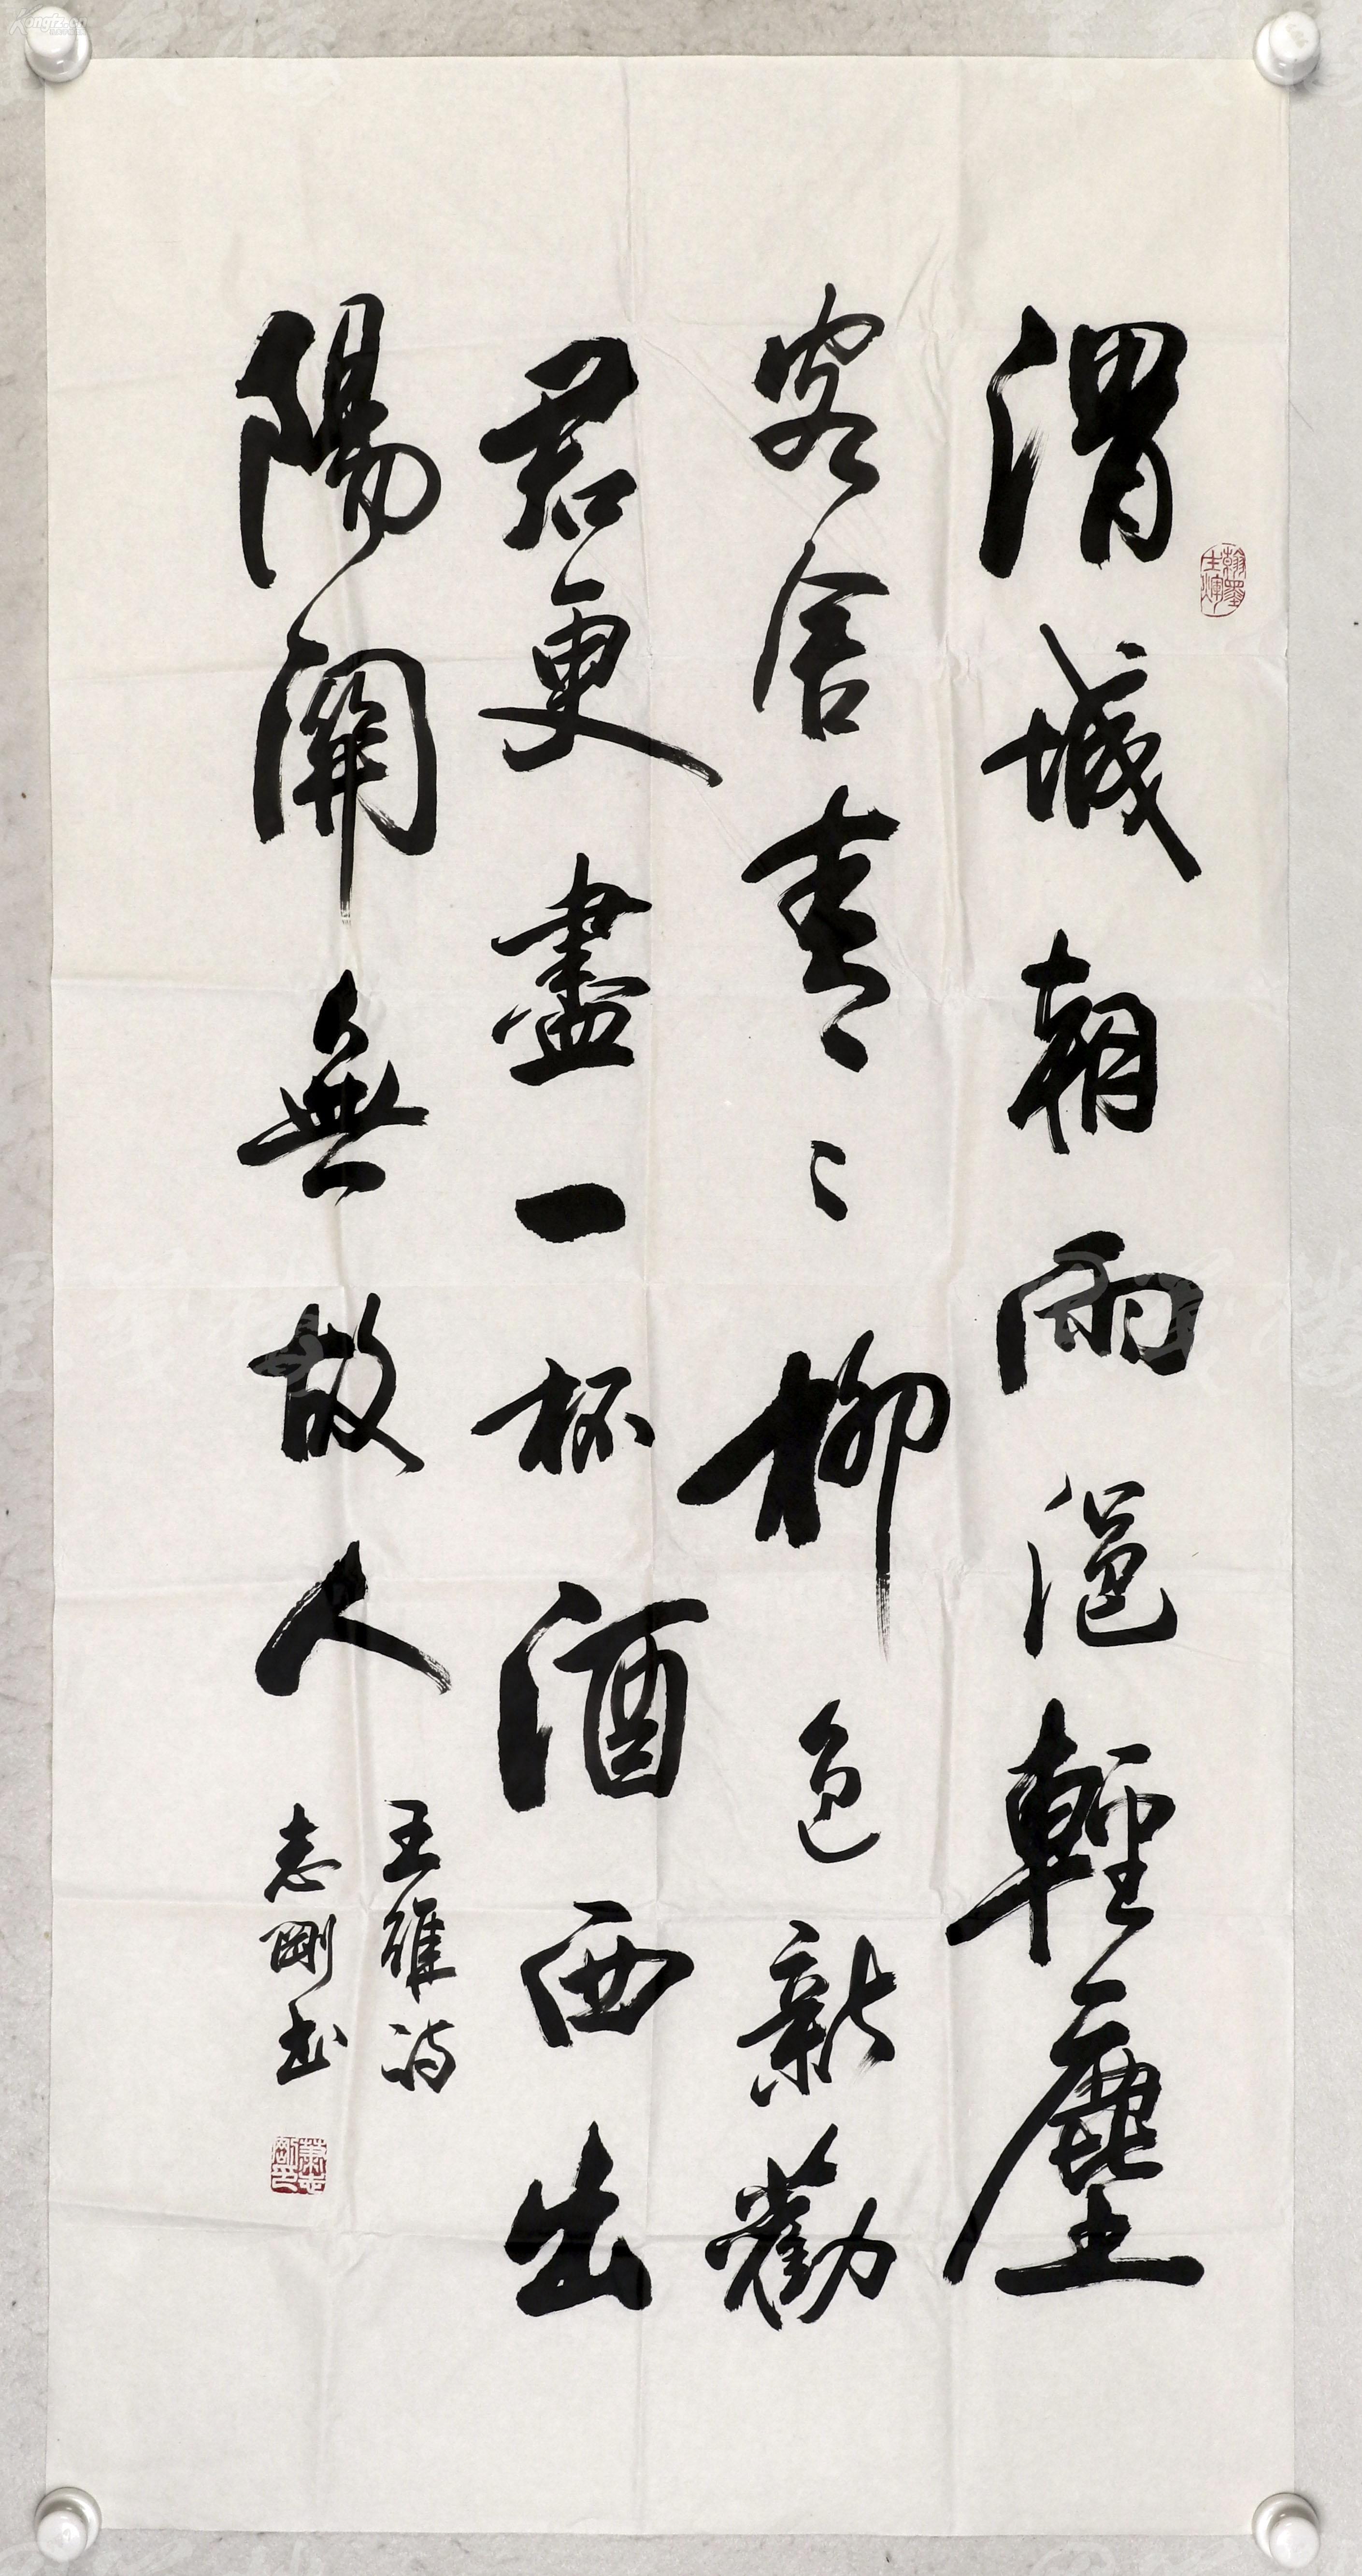 渭城朝雨浥輕塵
客舍青〻柳色新勸
君更盡一杯酒西出
陽關無故人
王維詩
志剛書
翰墨生輝
蕭志剛印